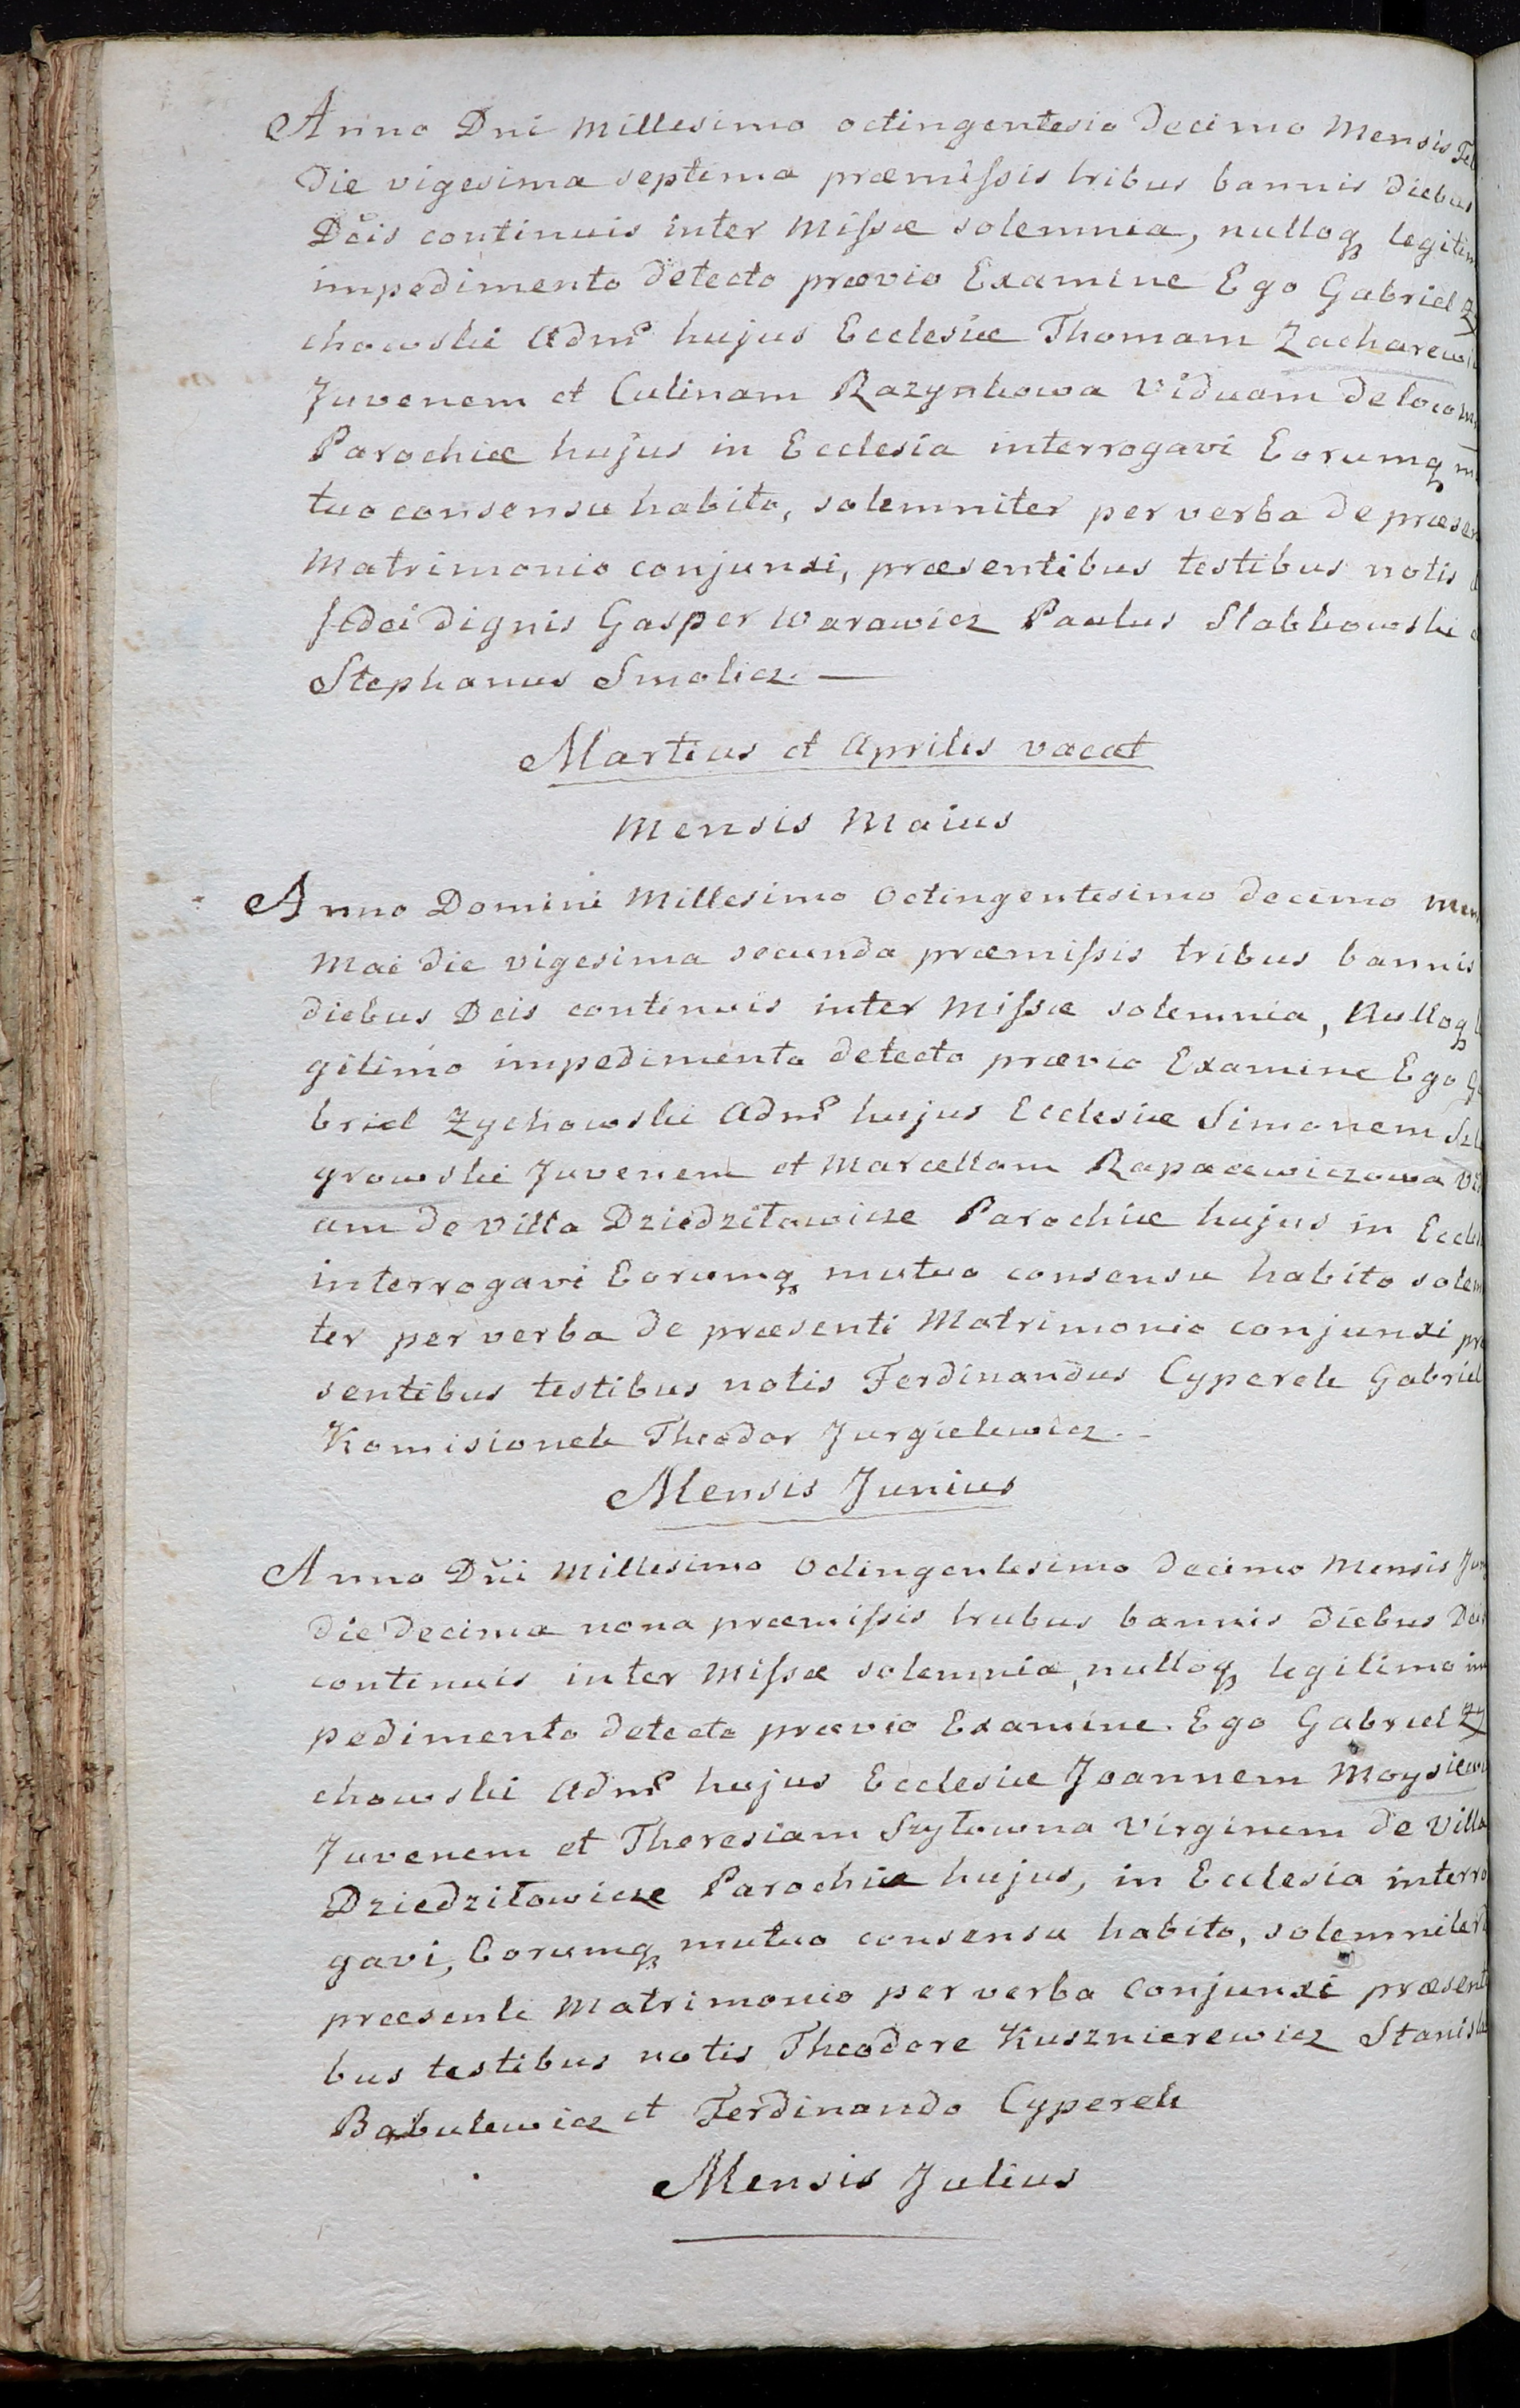 Anno Dni Millesimo octingentesio decimo Mensis Feb
die vigesima septima præmissis tribus bannis diebus
Dcis continuis inter Missæ solemnia, nulloq legitim
impedimento detecto prævio Examine Ego Gabriel Zy
chowski Admr hujus Ecclesiæ Thomam Zacharewi
Juvenem et Culinam Razynkowa Viduam de loco
Parochiæ hujus in Ecclesia interrogavi Eorumq m
tuo consensu habito, solemniter per verba de præsen
Matrimonio conjunxi, præsentibus testibus notis
fidei dignis Gasper Warawicz Paulus Slabkowski
Stephanus Smolicz. —
Martius et Aprilis vacat
Mensis Maius
Anno Domini Millesimo Octingentesimo decimo Men
Mai die vigesima secunda præmissis tribus bannis
diebus Dcis continuis inter Missæ solemnia, Nulloq l
gitimo impedimento detecto prævio Examine Ego Ga
briel Zychowski Admr hujus Ecclesiæ Simonem
growski Juvenem et Marcellam Rapacewiczowa Vi
am de Villa Dziedziławicze Parochiæ hujus in Eccles
interrogavi Eorumq mutuo consensu habito solem
ter per verba de præsenti Matrimonio conjunxi præ
sentibus testibus notis Ferdinandus Cyperek Gabriel
Komisionek Theodor Jurgielewicz. -
Mensis Junius
Anno Dni Millesimo Octingentesimo decimo Mensis Jun
die decima nona præmissis trubus bannis diebus Dcis
continuis inter Missæ solemnia, nulloq legitimo im
pedimento detecto prævio Examine. Ego Gabriel Zy
chowski Admr hujus Ecclesiæ Joannem Moysiewi
Juvenem et Theresiam Szyłowna Virginem de Villa
Dziedziławicze Parochiæ hujus, in Ecclesia interro
gavi, Eorumq mutuo consensu habito, solemniter d
præsenti Matrimonio per verba Conjunxi præsenti
bus testibus notis Theodore Kusznierewicz Stanisla
Babulewicz et Ferdinando Cyperek
Mensis Julius